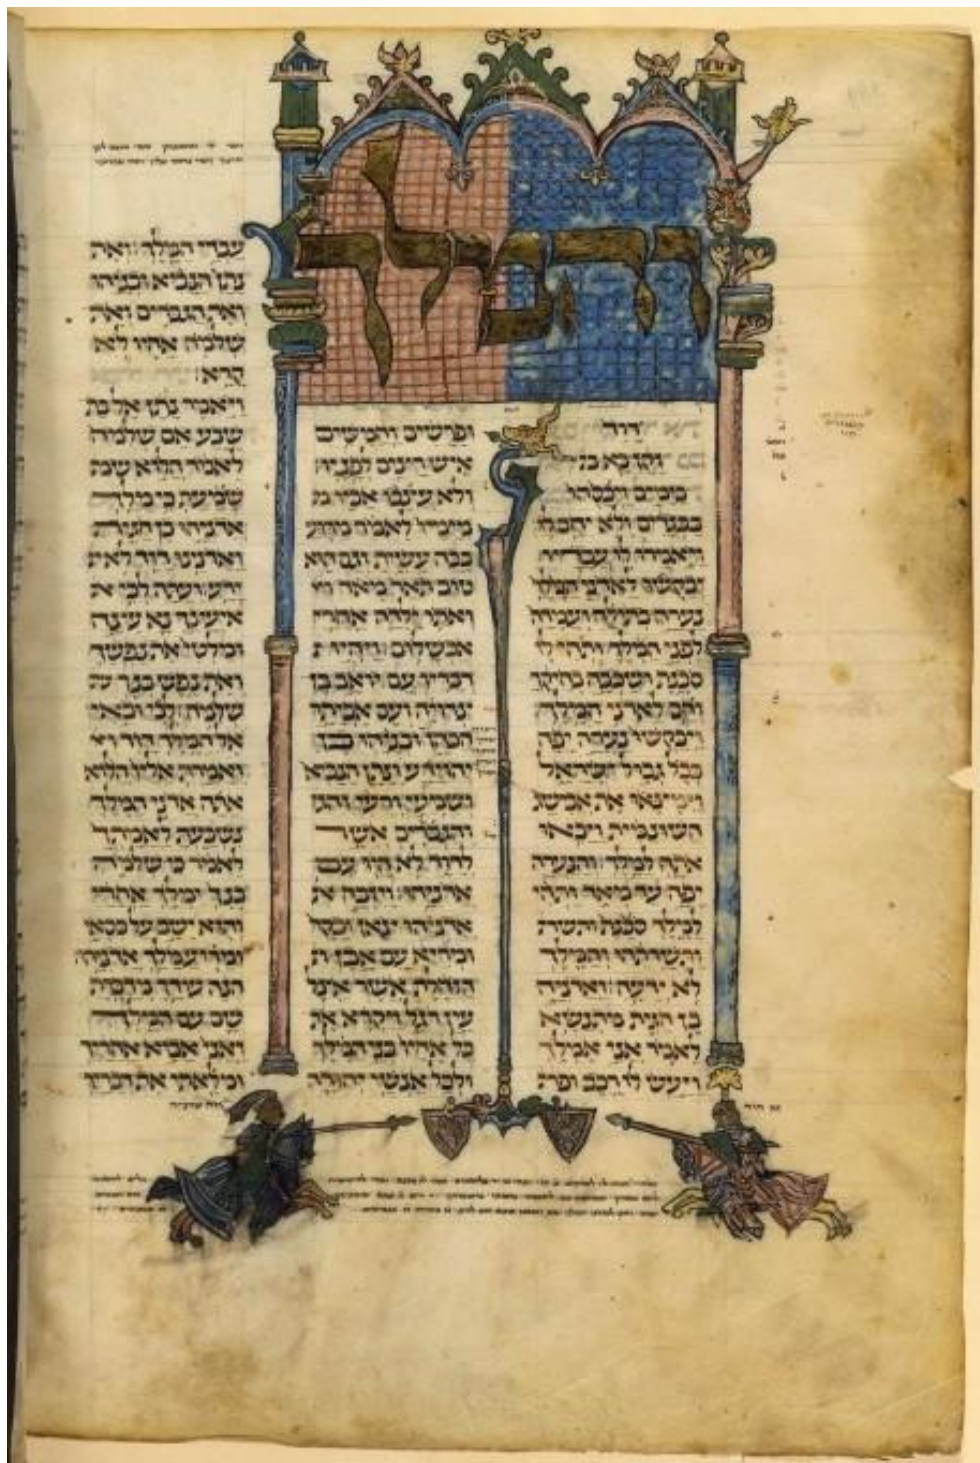 והמלך
דוד
זקן בא
בימים ויכסהו
בבגדים ולא יחם לו
ויאמרו לו עבדיו
יבקשו לאדני המלך
נערה בתולה ועמדה
לפני המלך ותהי לו
סכנת ושכבה בחיקך
וחם לאדני המלך
ויבקשו נערה יפה
בכל גבול ישראל
וימצאו את אבישג
השונמית ויבאו
אתה למלך והנערה
יפה עד מאד ותהי
למלך סכנת ותשרת
ותשרתהו והמלך
לא ידעה ואדניה
בן חגית מתנשא
לאמר אני אמלך
ויעש לו רכב ופר
ופרשים וחמשים
איש רצים לפניו
ולא עצבו אביו מ
מימיו לאמר מדוע
ככה עשית וגם הוא
טוב תאר מאד וא
ואתו ילדה אחרי
אבשלום ויהיו
דבריו עם יואב בן
צרויה ועם אביתר
הכהן ובניהו בן
יהוידע ונתן הנביא
ושמעי ורעי והגב
והגבורים אשר
לדוד לא היו עם
אדניהו ויזבח א
אדניהו צאן ובקר
ומריא עם אבן ה
הזחלת אשר אצל
עין רגל ויקרא את
כל אחיו בני המלך
ולכל אנשי יהודה
עבדי המלך ואת
נתן הנביא ובניהו
ואת הגבורים ואת
שלמה אחיו לא
קרא
ויאמר נתן אל בת
שבע אם שלמה
לאמר הלוא שמ
שמעת כי מלך
אדניהו בן חגית
ואדנינו דוד לא י
ידע ועתה לכי א
איעצך נא עצה
ומלטי את נפשך
ואת נפש בנך ש
שלמה לכי ובאי
אל המלך דוד וא
ואמרת אליו הלוא
אתה אדני המלך
נשבעת לאמתך
לאמר כי שלמה
בנך ימלך אחרי
והוא ישב על כסאי
ומדוע מלך אדניהו
הנה עודך מדברת
שם עם המלך
ואני אבוא אחריך
ומלאתי את דבריך